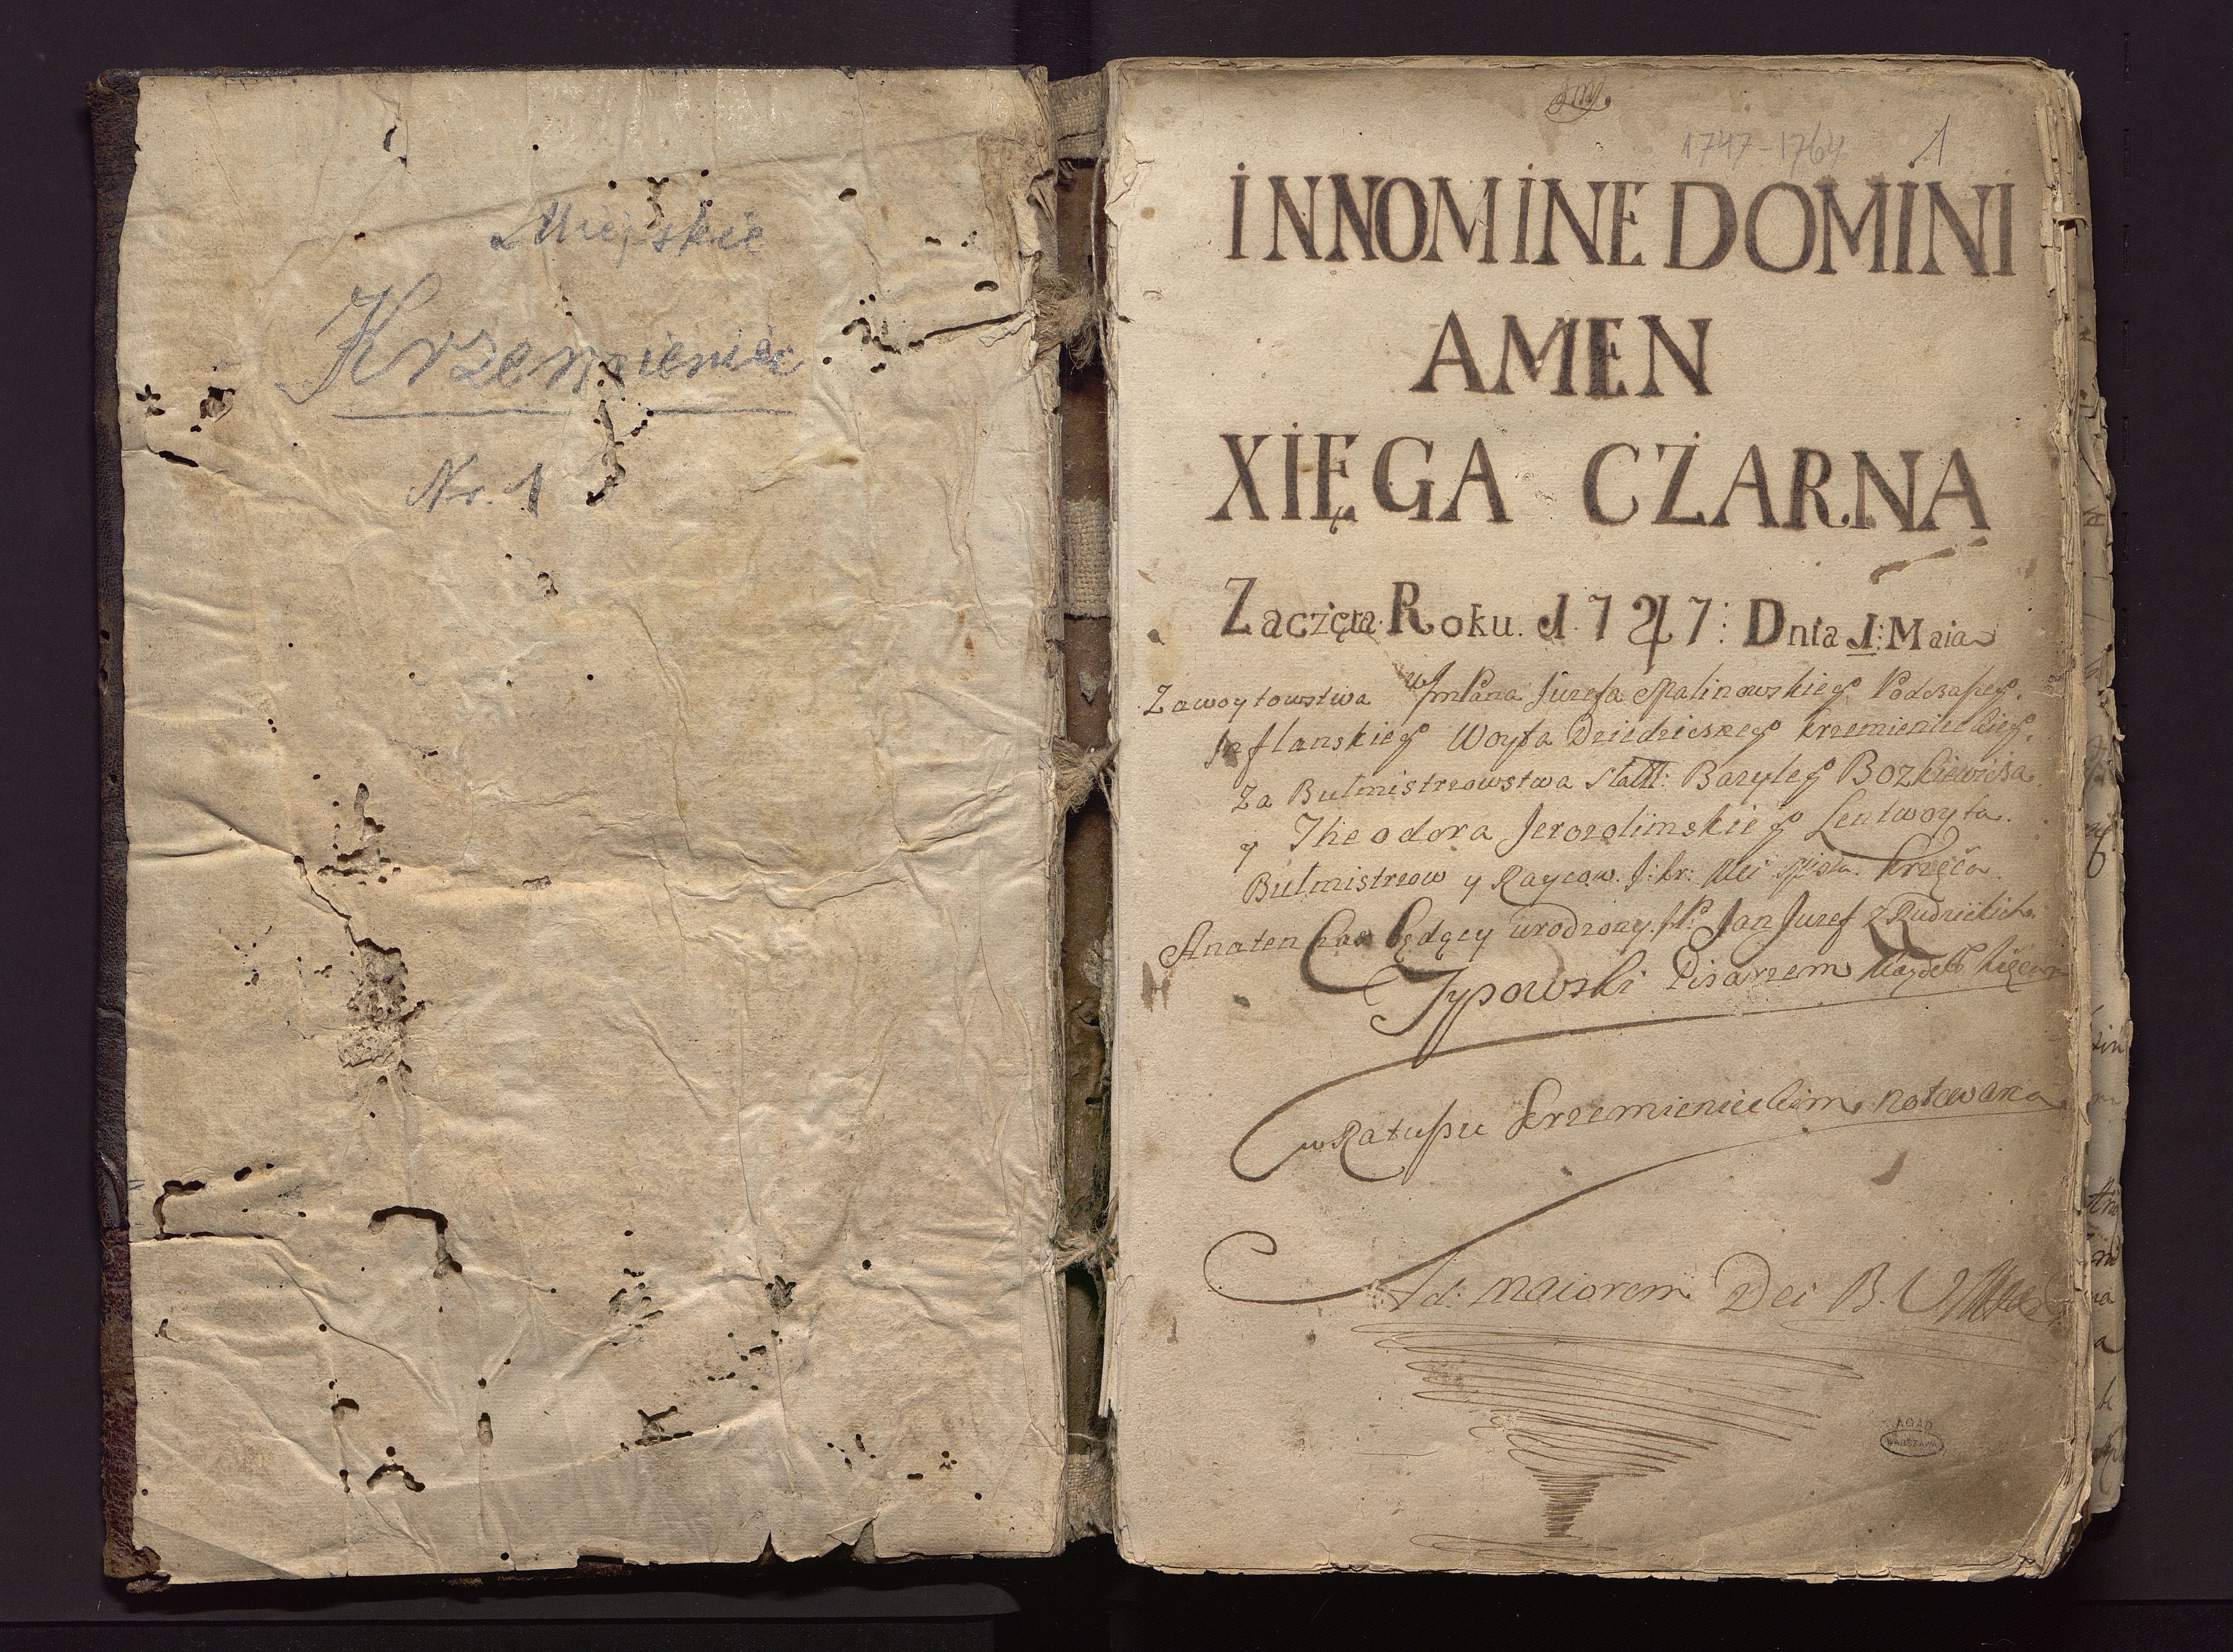 Miejskie
Krzemieniec
Nr. 1
1747-1764 1
IN NOMINE DOMINI
AMEN
XIĘGA CZARNA
Zaczęta Roku 1747: Dnia 1: Maia
Zawoytowstwa Jmć Pana Juzefa Malinowskiego Podczaszego
Inflanskiego Woyta Dziedzicznego krzemienieckiego
Za Bulmistrzowstwa Sławt: Bazylego Bozkiewicza
y Theodora Jerozolimskiego Lentwoyta
Bulmistrzow y Raycow. J: kr: Mci Miasta
Anaten Czas będący urodzony Jan Juzef z Rudzickich
Typowski Pisarzem
w Ratuszu krzemienieckim notowana
Ad: maiorem Dei B. V.
AGAD
WARSZAWA